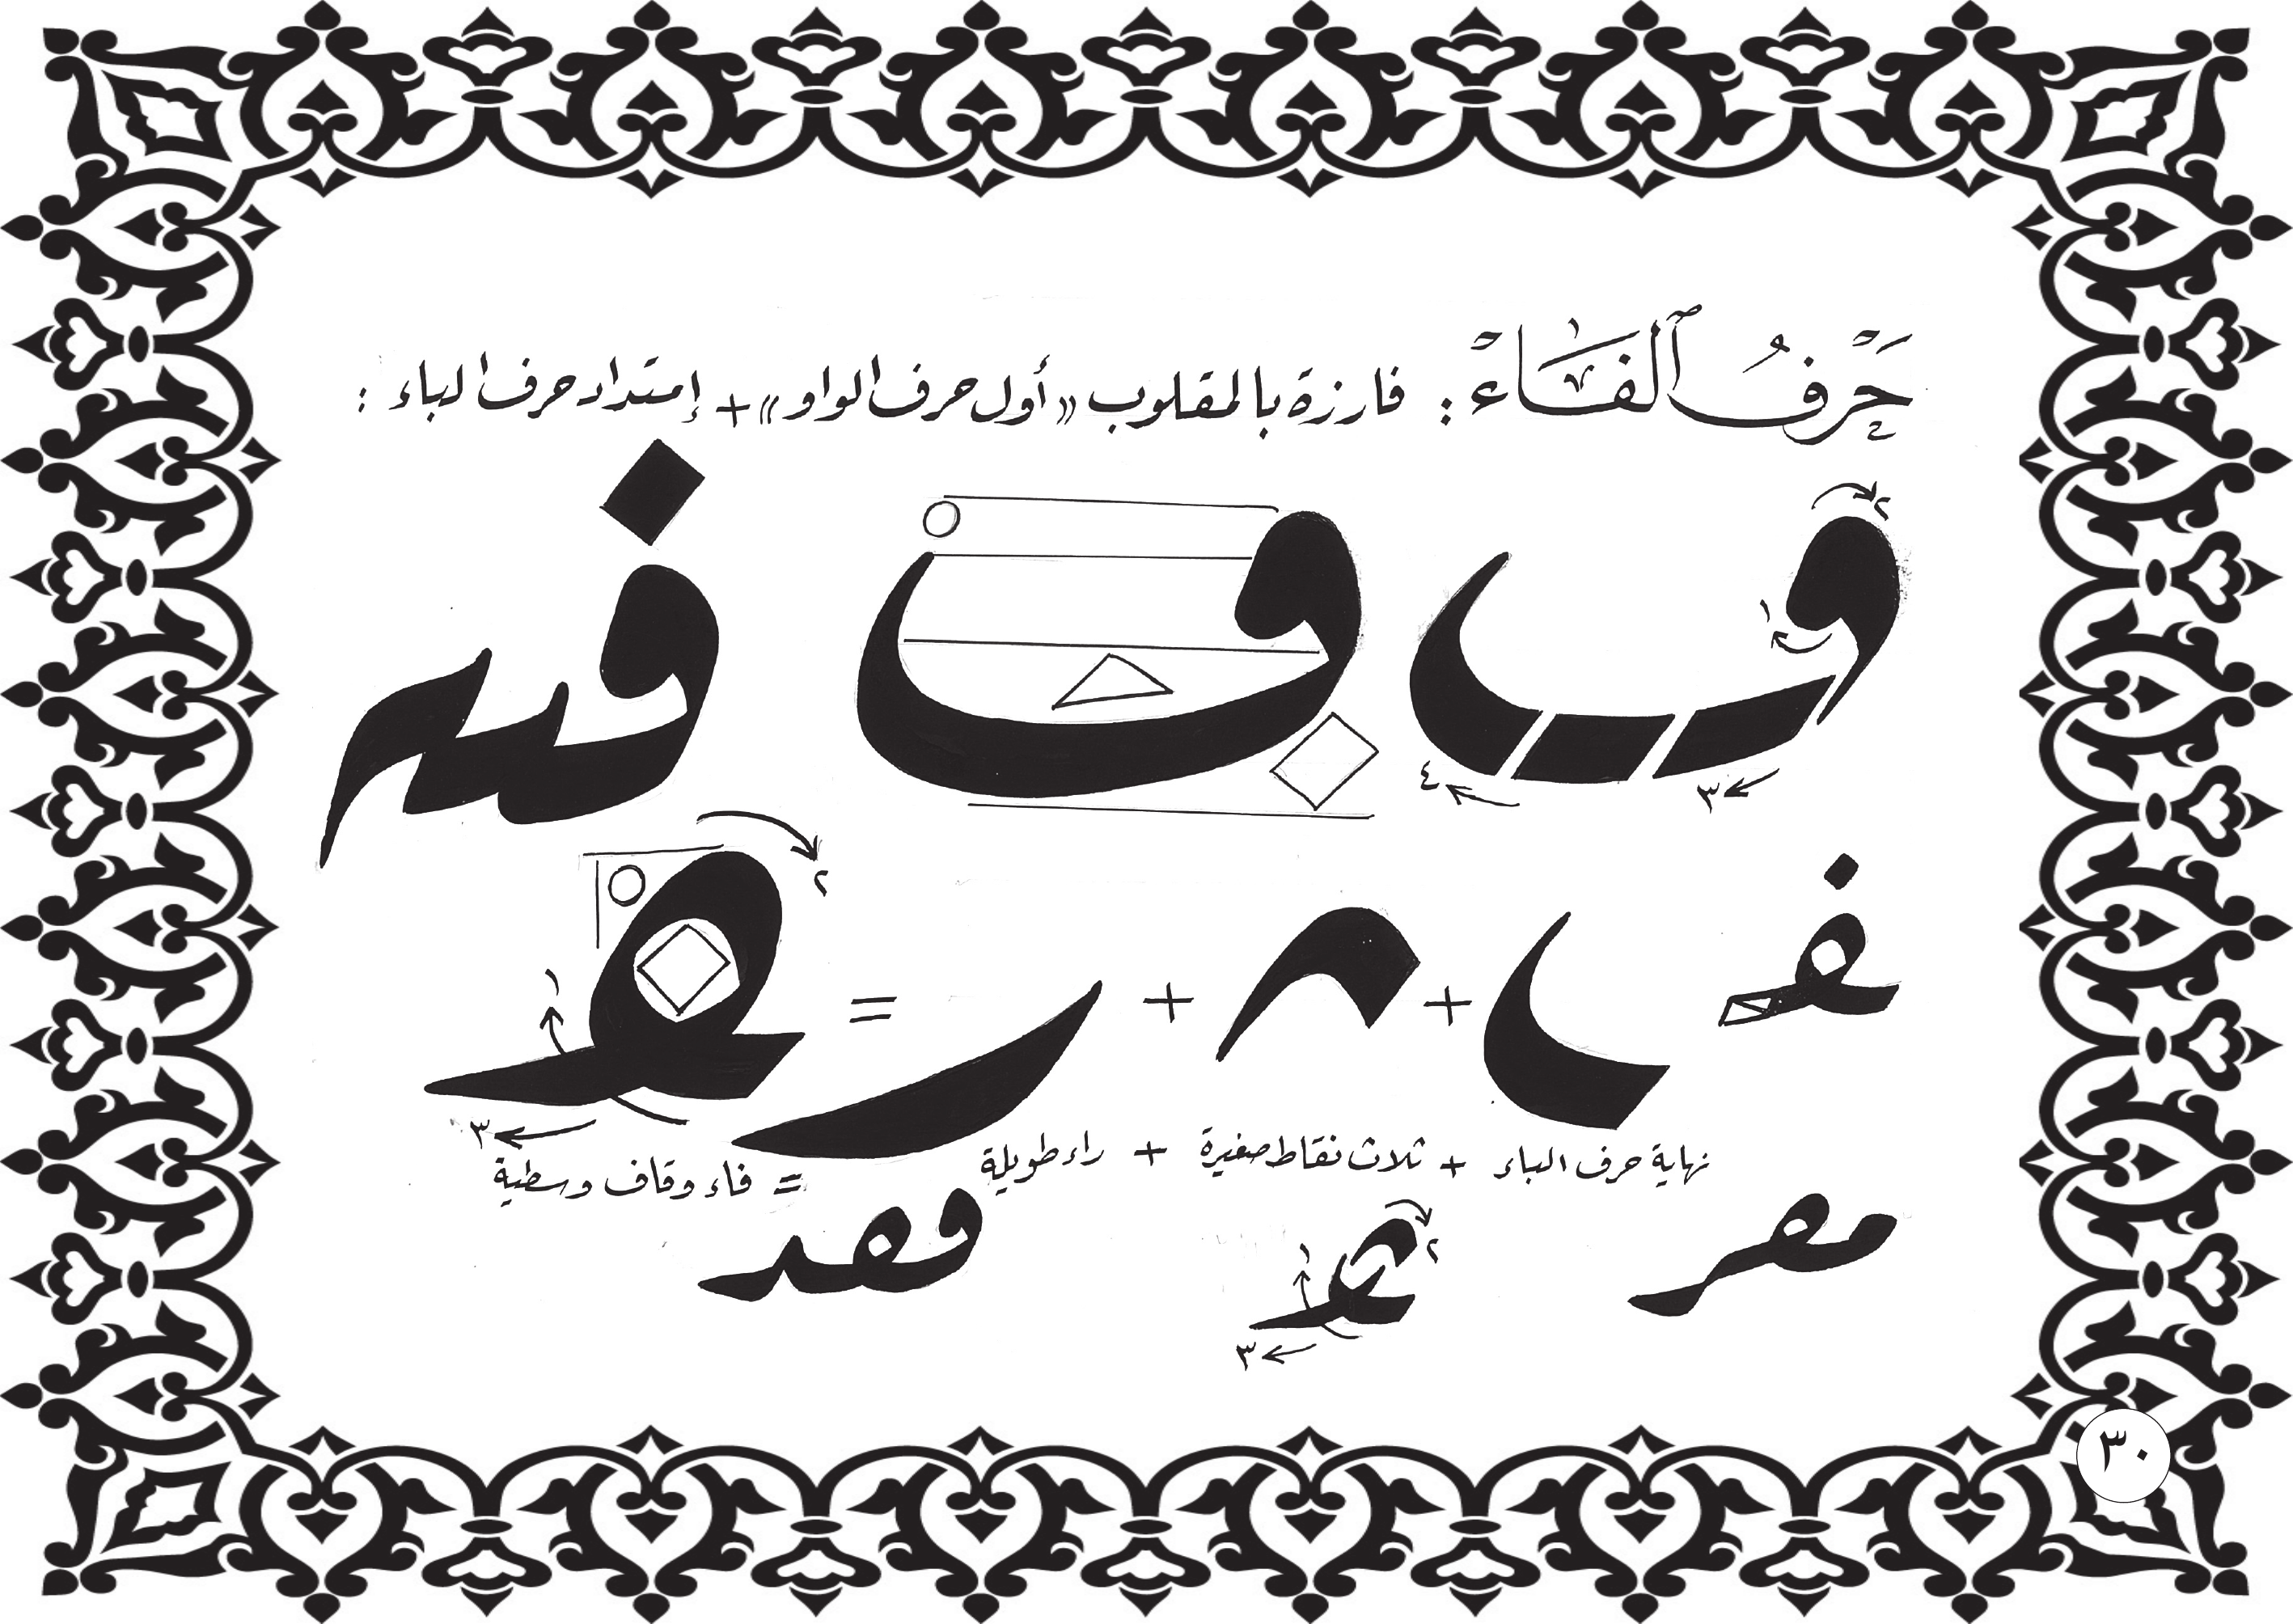 حَرْفُ ٱلْفَاءْ : فارزة بالمقلوب «أول حرف الواو» + إمتداد حرف الباء :
ف ف فسر
١ ٢ ٣ ٤
فـ + + ر = ـفـ
١ ٢ ٣
نهاية حرف الباء + ثلاث نقاط صغيرة + راء طويلة = فاء وقاف وسطية
١ ٢ ٣
٣٠